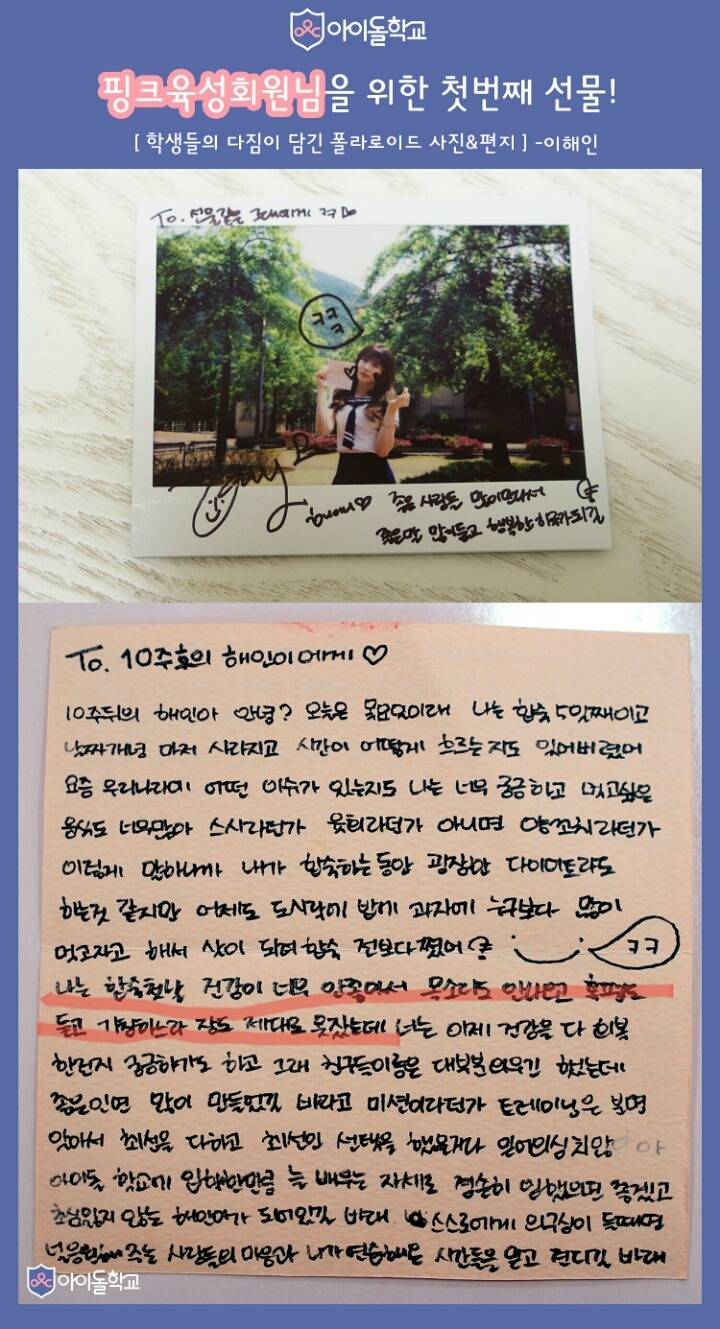 아이돌학교
핑크육성회원님을 위한 첫번째 선물!
[ 학생들의 다짐이 담긴 폴라로이드 사진&편지 ] -이해인
To. 선물같은 그대에게 ♡
ㅋㅋㅋ
해인♡ 좋은 사람들 많이만나서
좋은말 많이듣고 행복한 하루가되길
To. 10주후의 해인이에게 ♡
10주뒤의 해인아 안녕? 오늘은 목요일이래 나는 합숙 5일째이고
날짜개념 마저 사라지고 시간이 어떻게 흐르는지도 잊어버렸어
요즘 우리나라에 어떤 이슈가 있는지도 나는 너무 궁금하고 먹고싶은
음식도 너무많아 스시라던가 육회라던가 아니면 양꼬치라던가
이렇게 말하니까 내가 합숙하는동안 굉장한 다이어트라도
하는것 같지만 어제도 도시락에 밥에 과자에 누구보다 많이
먹고자고 해서 살이 되려 합숙 전보다쪘어
ㅋㅋ
나는 합숙첫날 건강이 너무 안좋아서 목소리도 안나오고 혹평도
듣고 기침하느라 잠도 제대로 못잤는데 너는 이제 건강을 다 회복
한건지 궁금하기도 하고 그래 친구들이름은 대부분 외우긴 했는데
좋은인연 많이 만들었길 바라고 미션이라던가 트레이닝은 분명
최선을 다하고 최선의 선택을 했을거라 믿어의심치않아
아이돌 학교에 입학한만큼 늘 배우는 자세로 겸손히 임했으면 좋겠고
초심잃지 않는 해인이가 되어있길 바래 스스로에게 의구심이 들때면
널응원해 주는 사람들의 마음과 니가 연습해온 시간들을 믿고 견디길 바래
아이돌학교